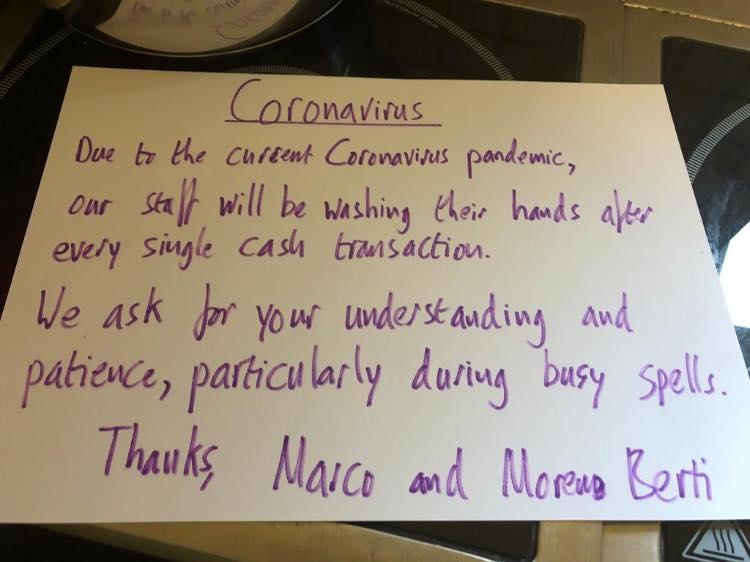 Coronavirus
Due to the current Coronavirus pandemic,
our staff will be washing their hands after
every single cash transaction.
We ask for your understanding and
patience, particularly during busy spells.
Thanks, Marco and Moreno Berti